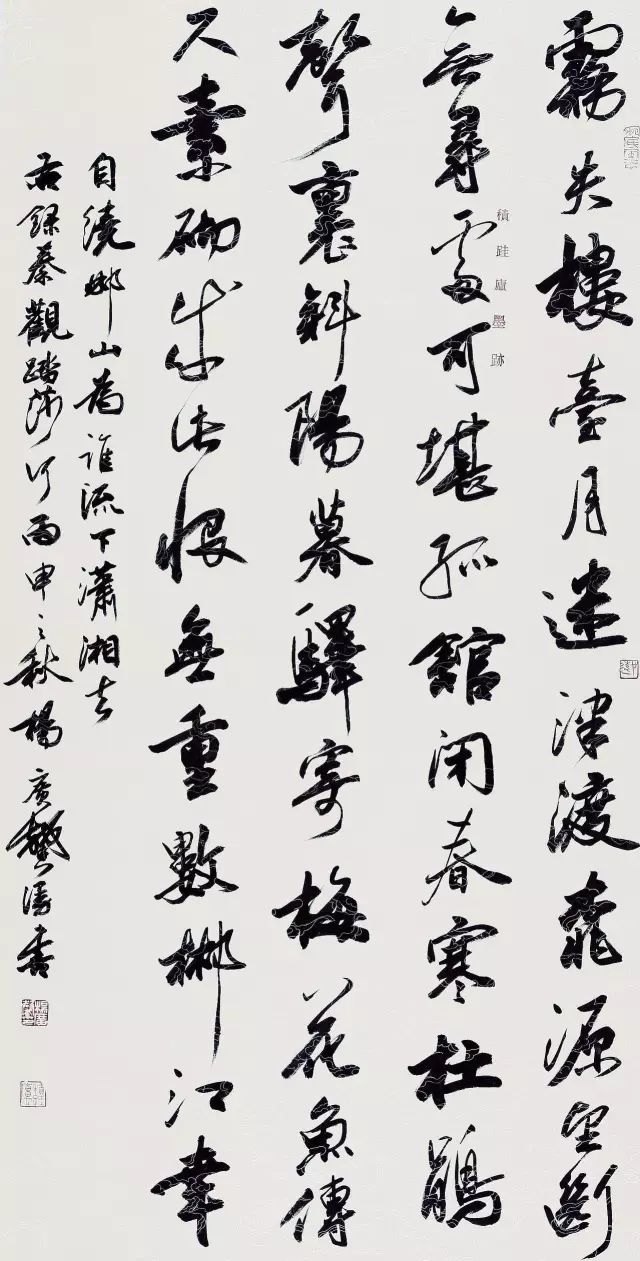 霧失樓臺月迷津渡桃源望斷
無尋處可堪孤館閉春寒杜鵑
積跬廬墨跡
聲裏斜陽暮驛寄梅花魚傳
尺素砌成此恨無重數郴江幸
自繞郴山為誰流下瀟湘去
右錄秦觀踏莎行丙申之秋楊廣馨書